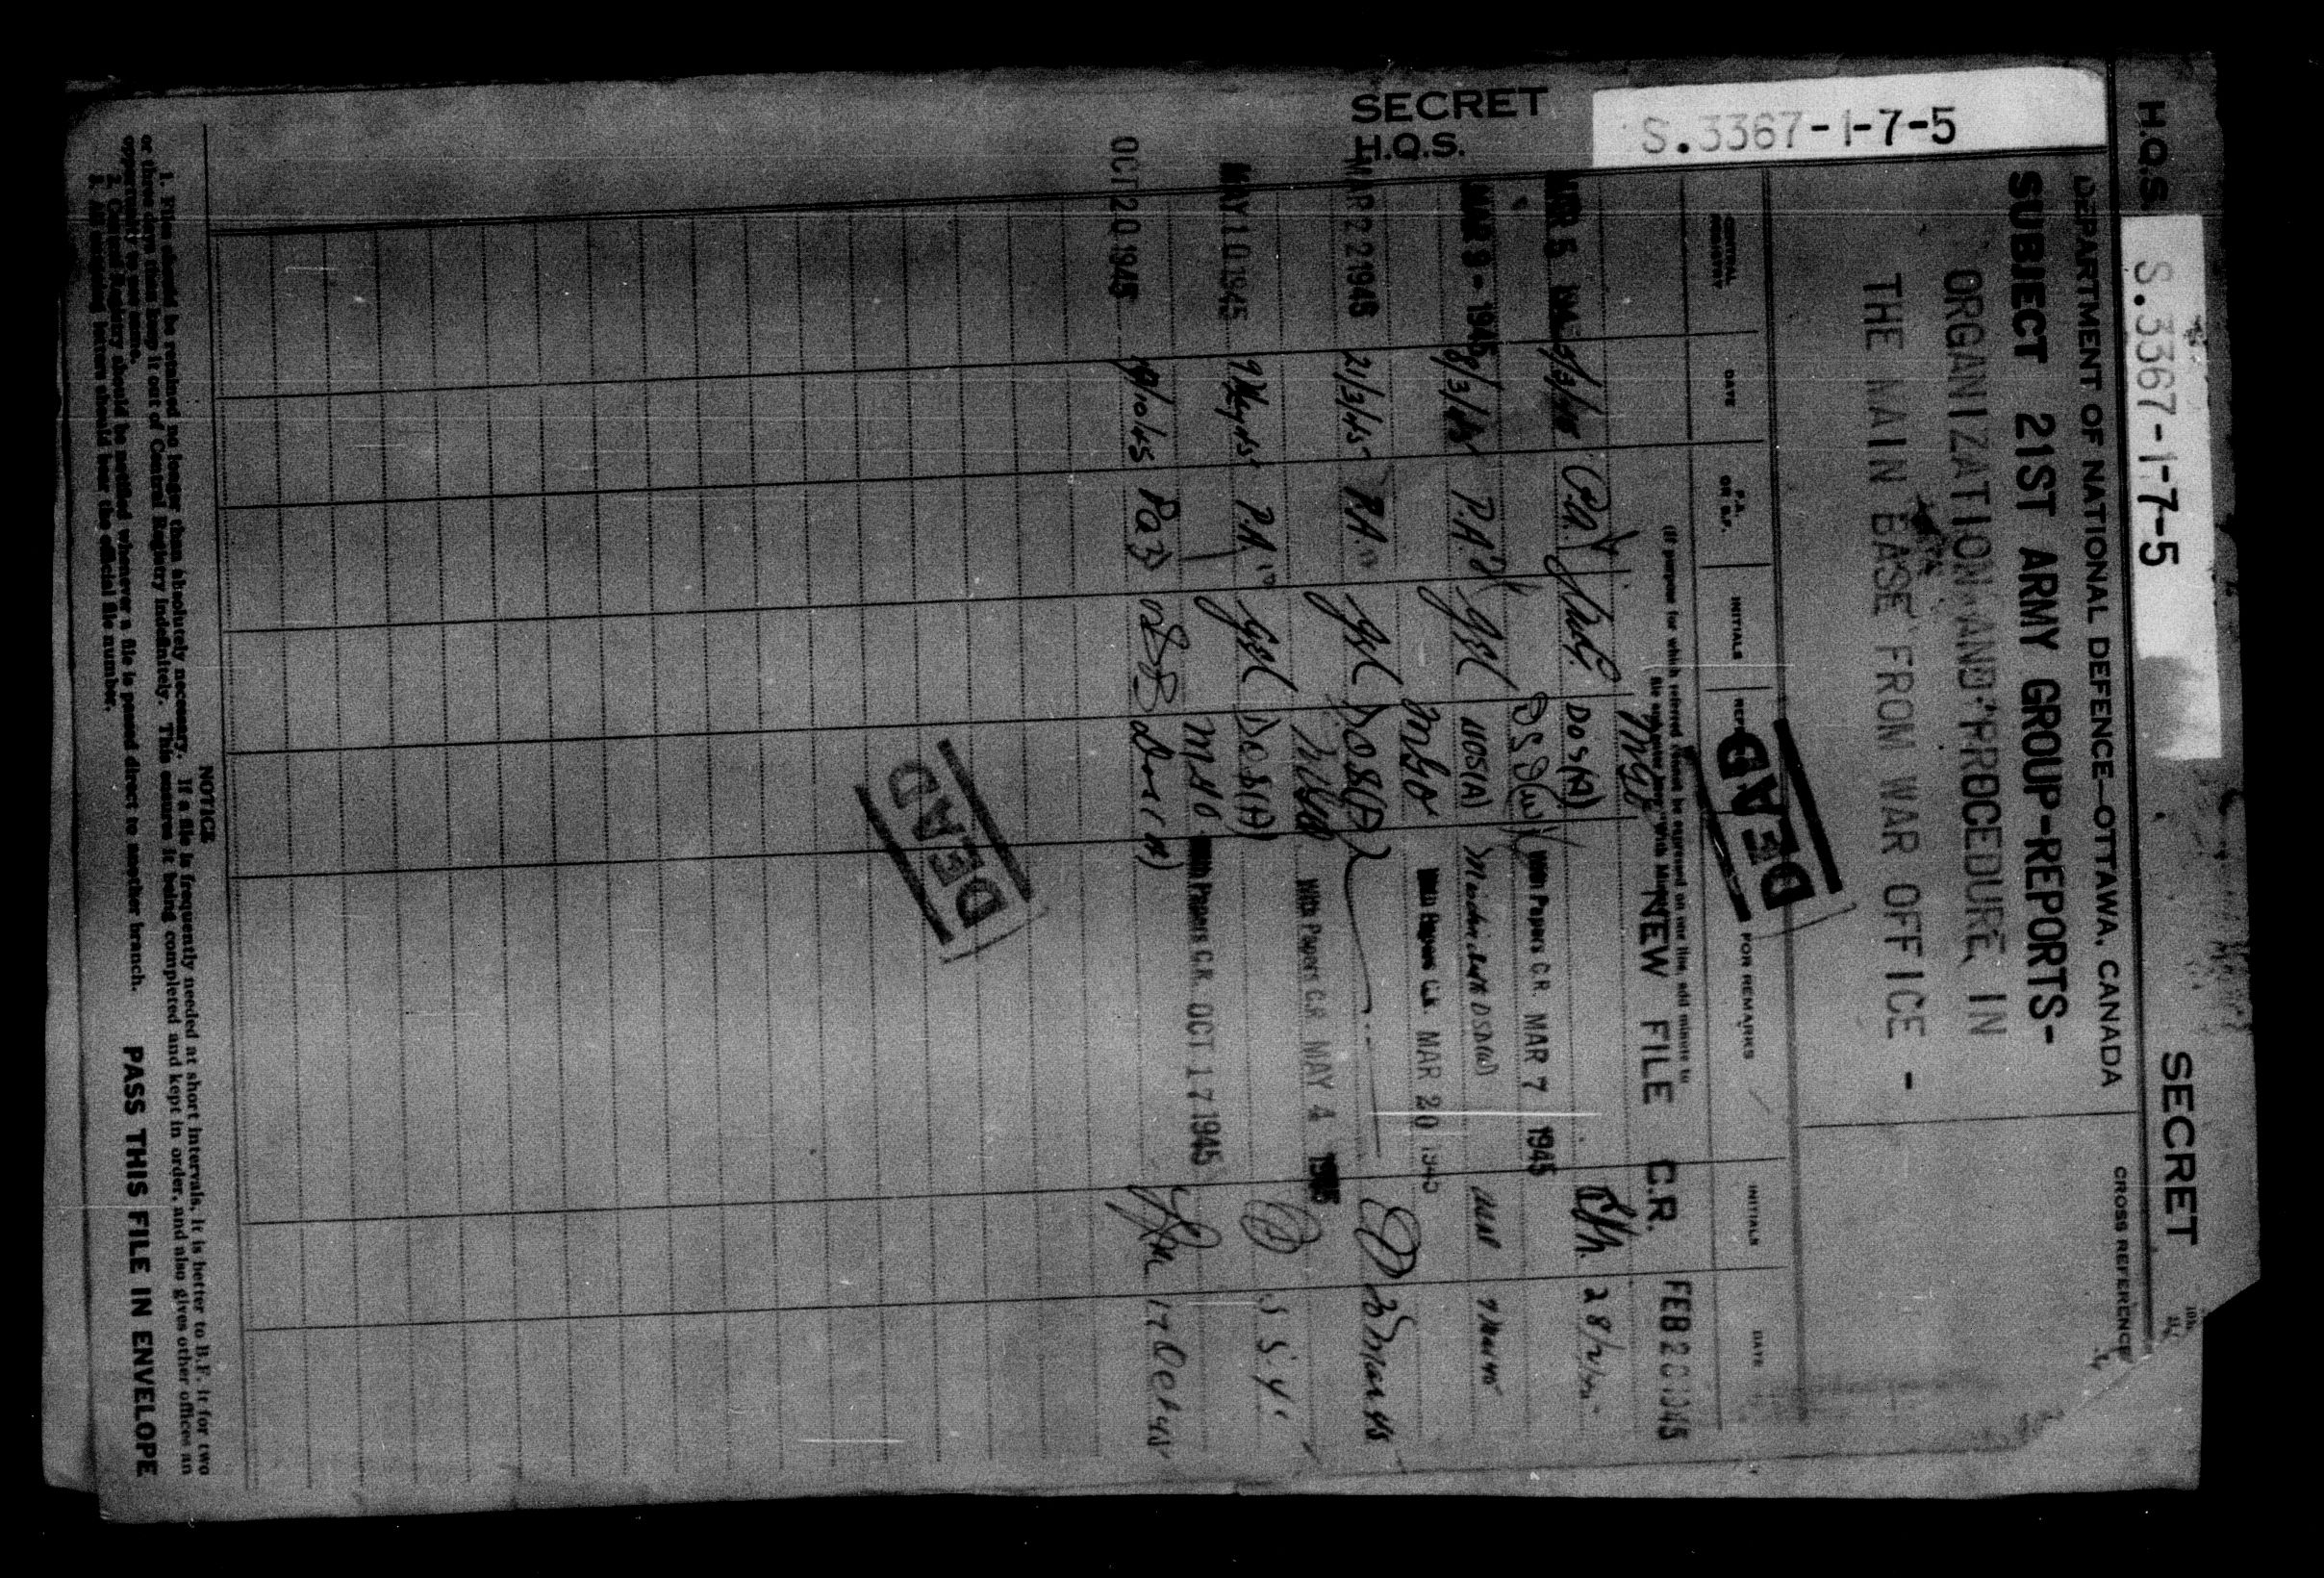 SECRET
H.Q.S.
S.3367-1-7-5
H.Q.S. S.3367-1-7-5 SECRET
DEPARTMENT OF NATIONAL DEFENCE—OTTAWA, CANADA
CROSS REFERENCE
SUBJECT 21ST ARMY GROUP-REPORTS-
ORGANIZATION AND PROCEDURE, IN
THE MAIN BASE FROM WAR OFFICE -
DEAD
CENTRAL REGISTRY DATE P.A. OR B.F. INITIALS FOR REMARKS INITIALS DATE
(If purpose for which referred cannot be expressed on one line, add minute to
NEW FILE C.R. FEB 2 1945
MAR 5 P.A. DOS(A) 28/2/45
With Papers C.R. MAR 7 1945
MAR 9 - 1945 8/3/45 P.A. DOS(A) DSD(W) 7 Mar 45
MGO With Papers C.R. MAR 20 1945
MAR 22 1945 21/3/45 P.A. DOS(A) 20 Mar 45
MGO With Papers C.R. MAY 4 1945
MAY 10 1945 9 May 45 P.A. DOS(A)
MGO With Papers C.R. OCT 17 1945
OCT 20 1945 19/10/45 DOS(A) 17 Oct 45
DEAD
NOTICE
1. Files should be retained no longer than absolutely necessary. If a file is frequently needed at short intervals, it is better to B.F. it for two
or three days than keep it out of Central Registry indefinitely. This ensures it being completed and kept in order, and also gives other offices an
opportunity to see same.
2. Central Registry should be notified whenever a file is passed direct to another branch.
3. All outgoing letters should bear the official file number.
PASS THIS FILE IN ENVELOPE